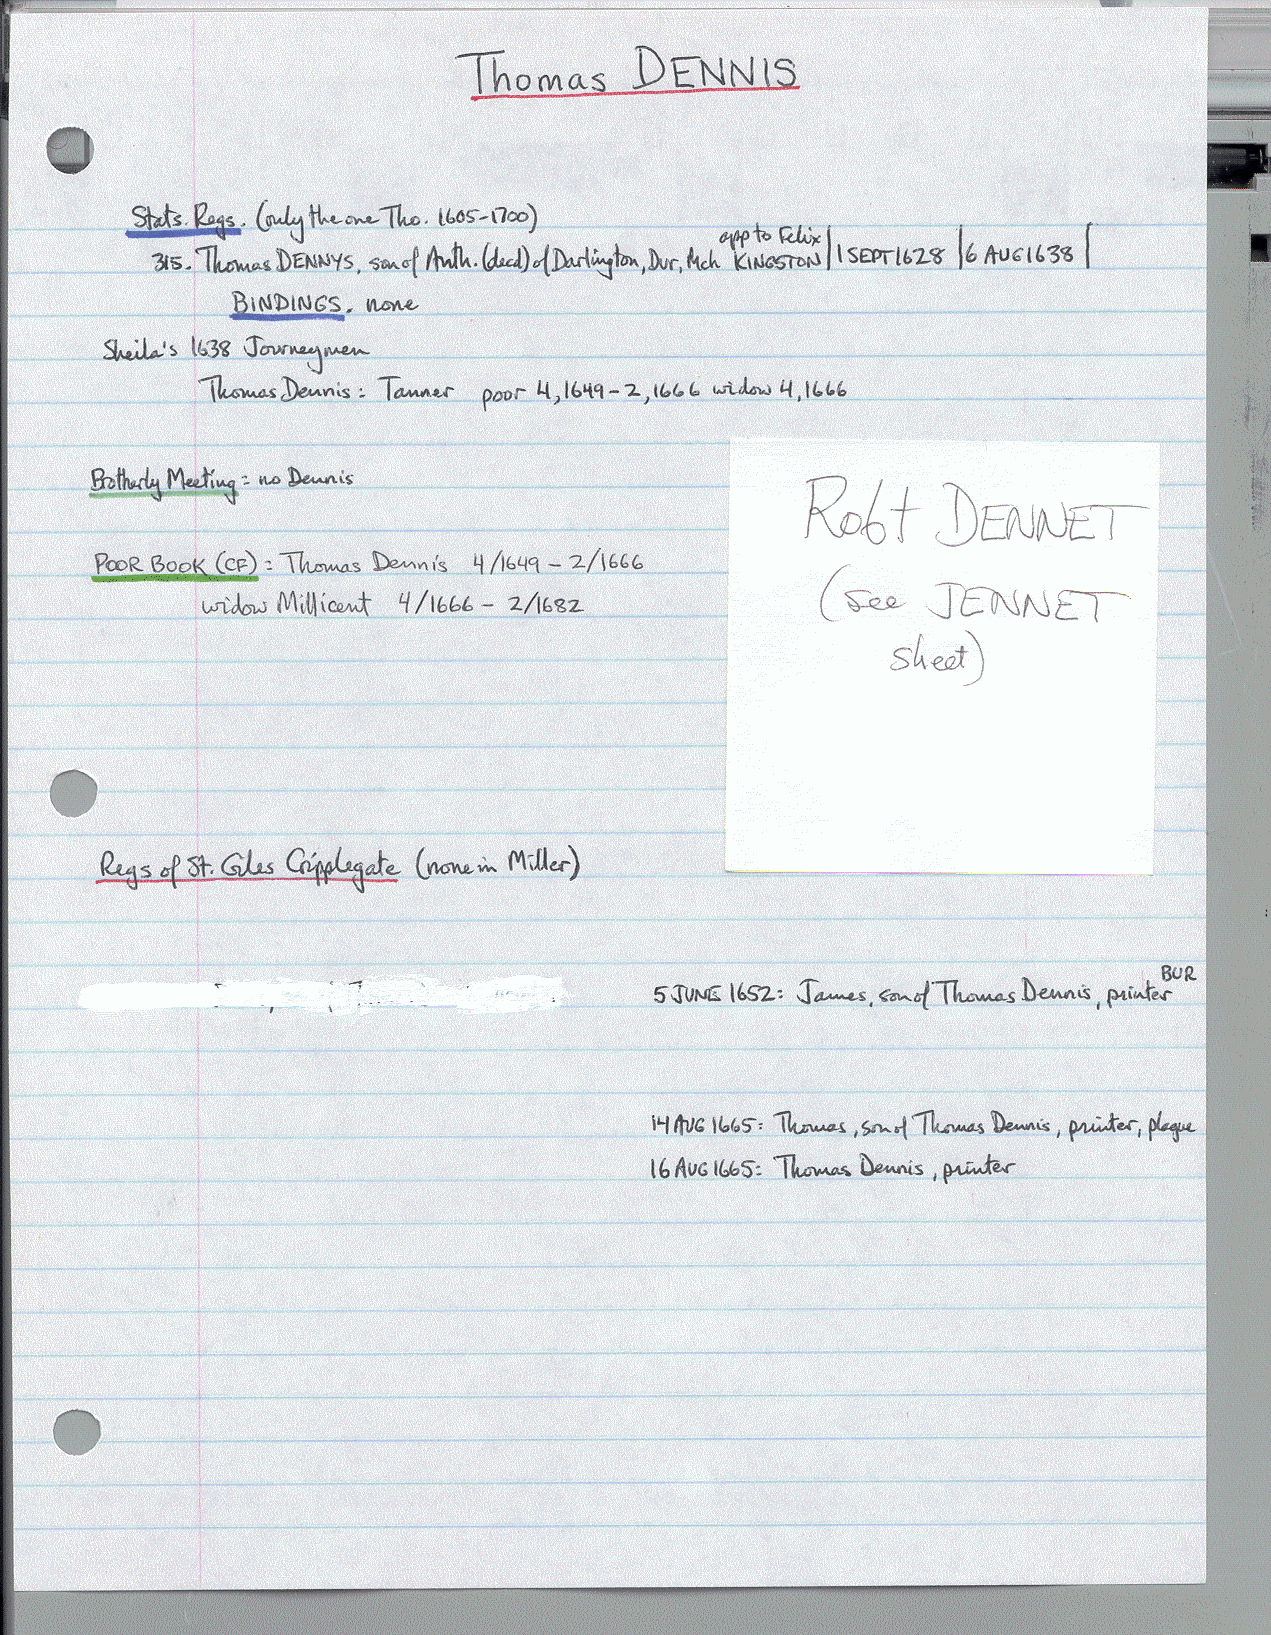 Thomas DENNIS
Stats. Regs. (only the one Tho. 1605-1700)
app to Felix
315. Thomas DENNYS, son of Anth. (decd) of Darlington, Dur, Mch KINGSTON | 1 SEPT 1628 | 6 AUG 1638 |
BINDINGS. none
Sheila's 1638 Journeymen
Thomas Dennis: Tanner poor 4,1649-2,1666 widow 4,1666
Brotherly Meeting: no Dennis
Robt DENNET
(see JENNET
sheet)
POOR BOOK (CF): Thomas Dennis 4/1649 - 2/1666
widow Millicent 4/1666 - 2/1682
Regs of St. Giles Cripplegate (none in Miller)
BUR
5 JUNE 1652: James, son of Thomas Dennis, printer
14 AUG 1665: Thomas, son of Thomas Dennis, printer, plague
16 AUG 1665: Thomas Dennis, printer